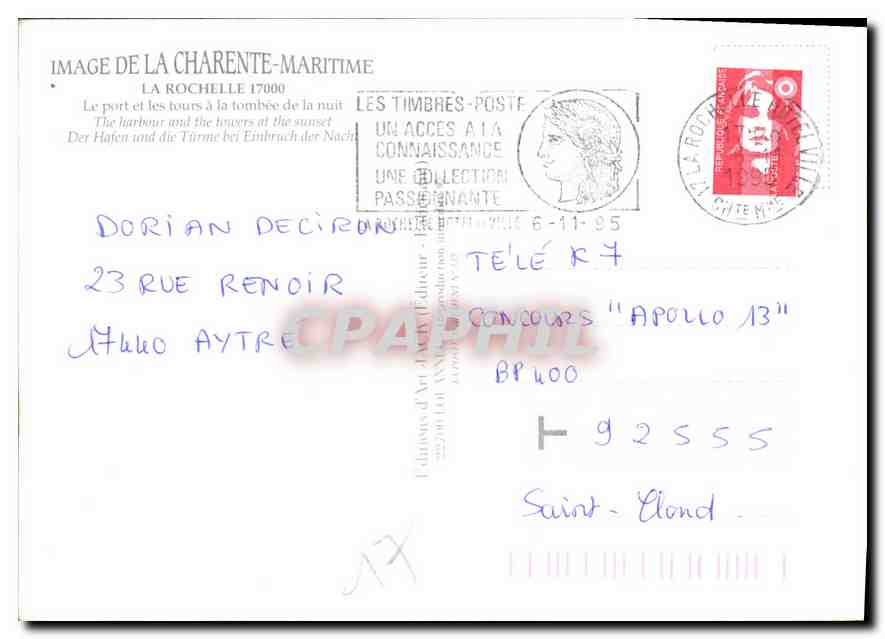 IMAGE DE LA CHARENTE-MARITIME
LA ROCHELLE 17000
Le port et les tours à la tombée de la nuit
The harbour and the towers at the sunset
Der Hafen und die Türme bei Einbruch der Nacht
LES TIMBRES-POSTE
UN ACCES A LA
CONNAISSANCE
UNE COLLECTION
PASSIONNANTE
LA ROCHELLE HOTEL DE VILLE 6-11-95
REPUBLIQUE FRANÇAISE
LA POSTE
17 LA ROCHELLE HOTEL VILLE
CHTE MME
DORIAN DECIRON
23 RUE RENOIR
17440 AYTRE
TÉLÉ K7
CONCOURS "APOLLO 13"
BP 400
92555
Saint-Cloud
Editions d'Art JACK (Editeur
CPAPHIL
17